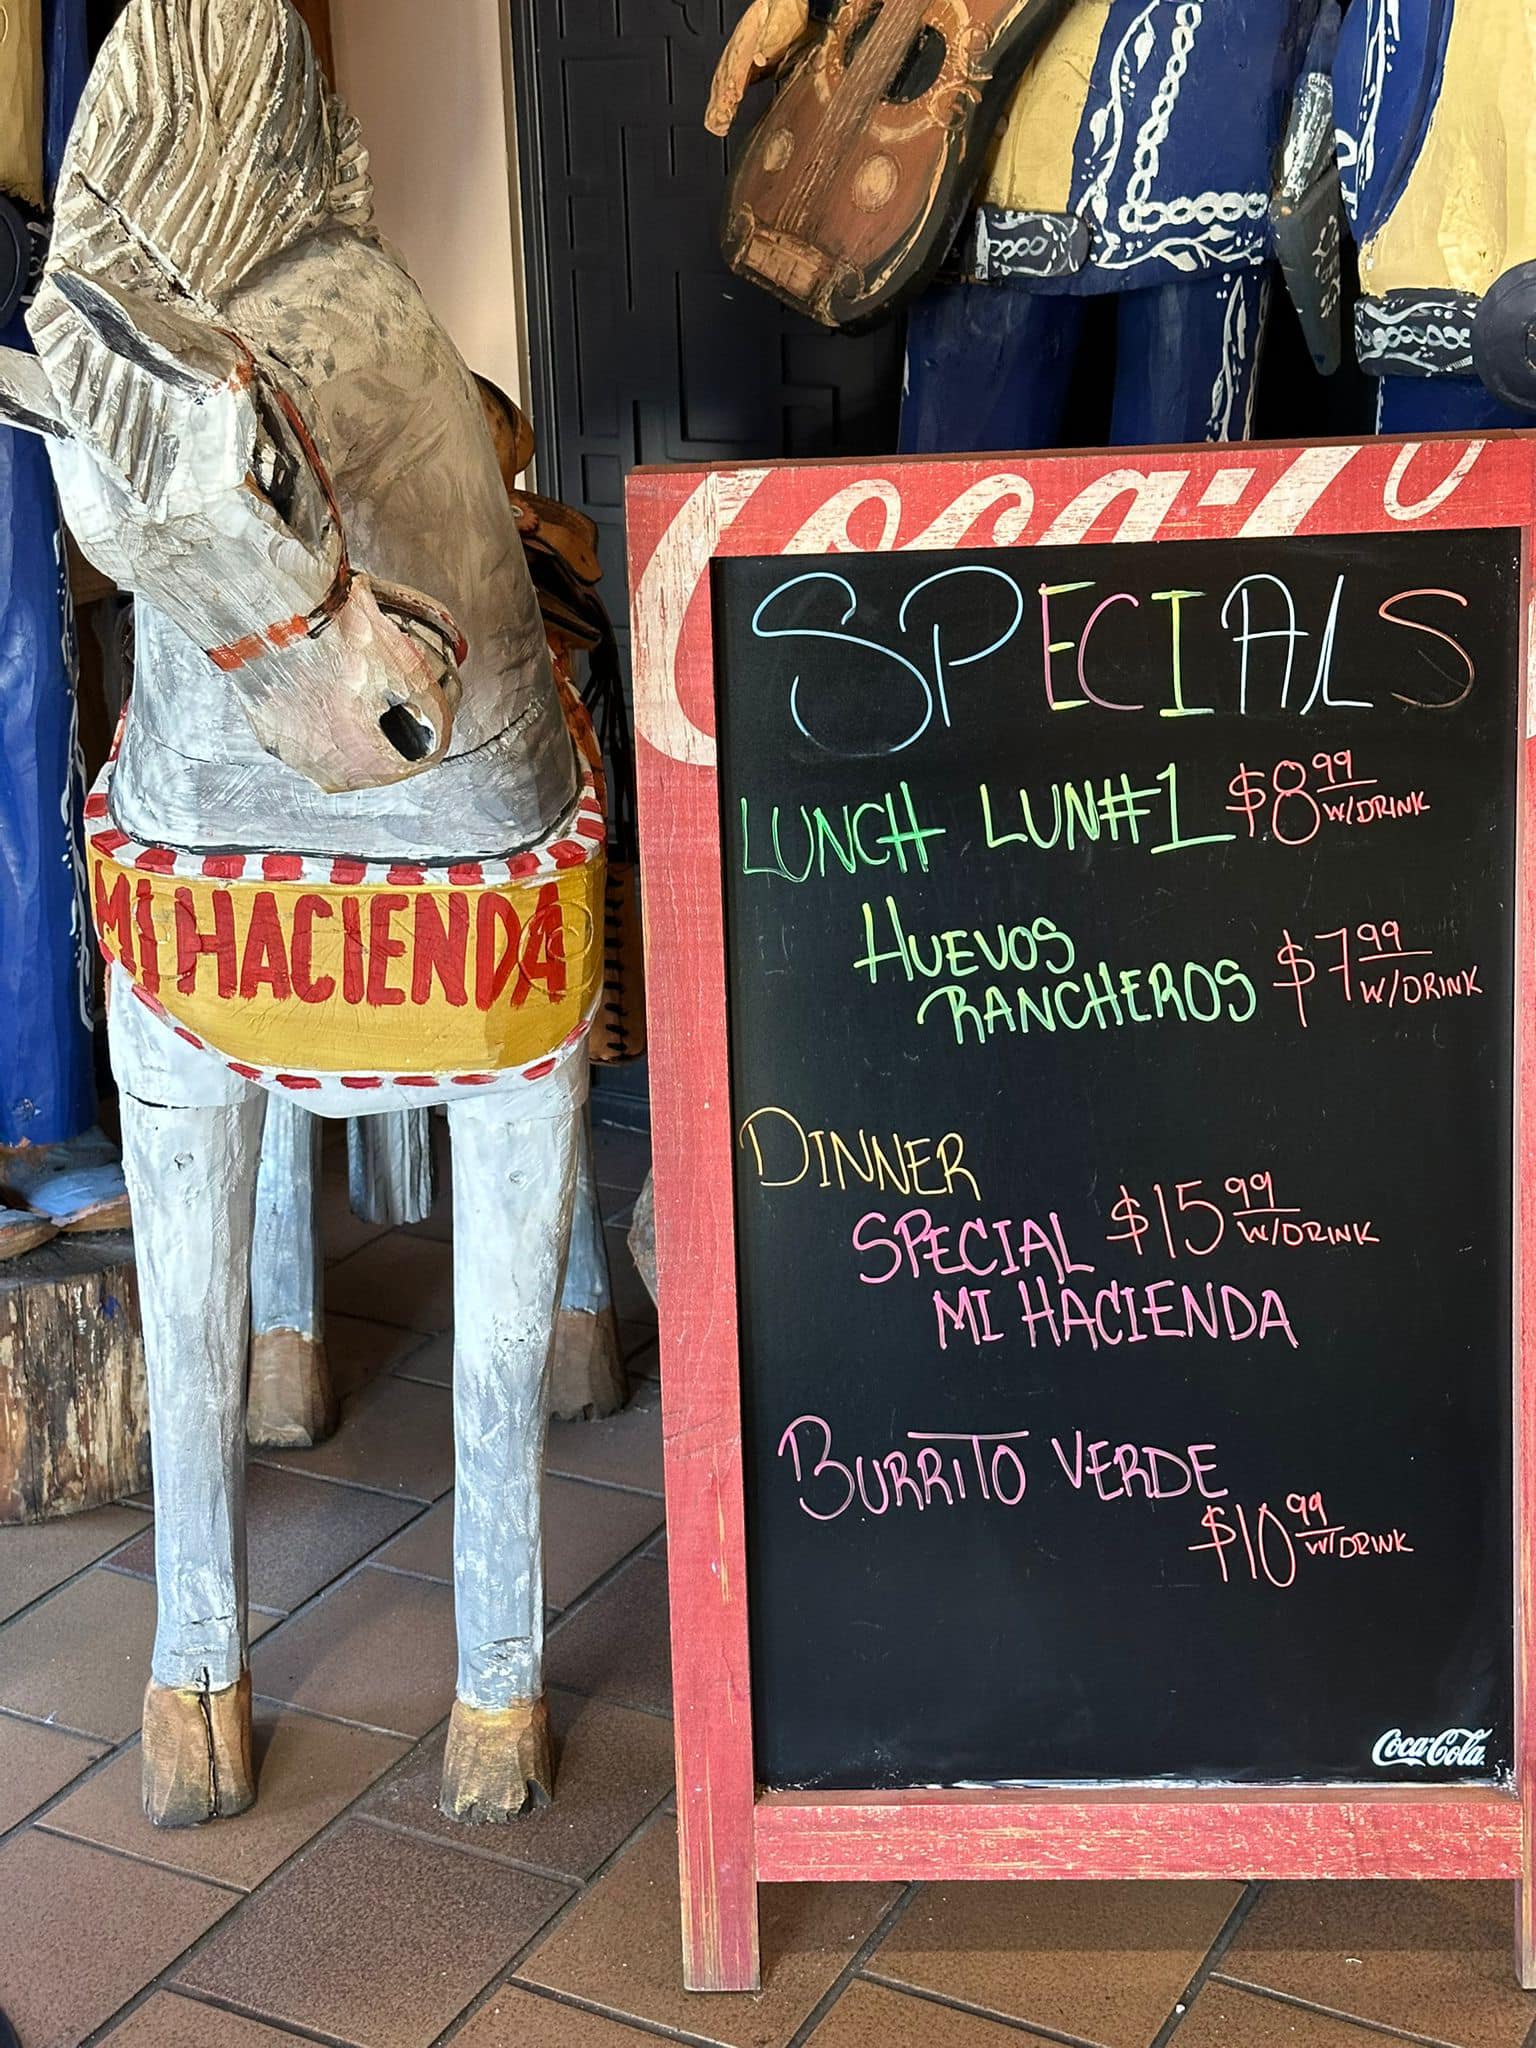 MI HACIENDA
Coca-Co
SPECIALS
LUNCH LUN#1 $8.99 W/DRINK
HUEVOS
RANCHEROS $7.99 W/DRINK
DINNER
SPECIAL $15.99 W/DRINK
MI HACIENDA
BURRITO VERDE
$10.99 W/DRINK
Coca-Cola